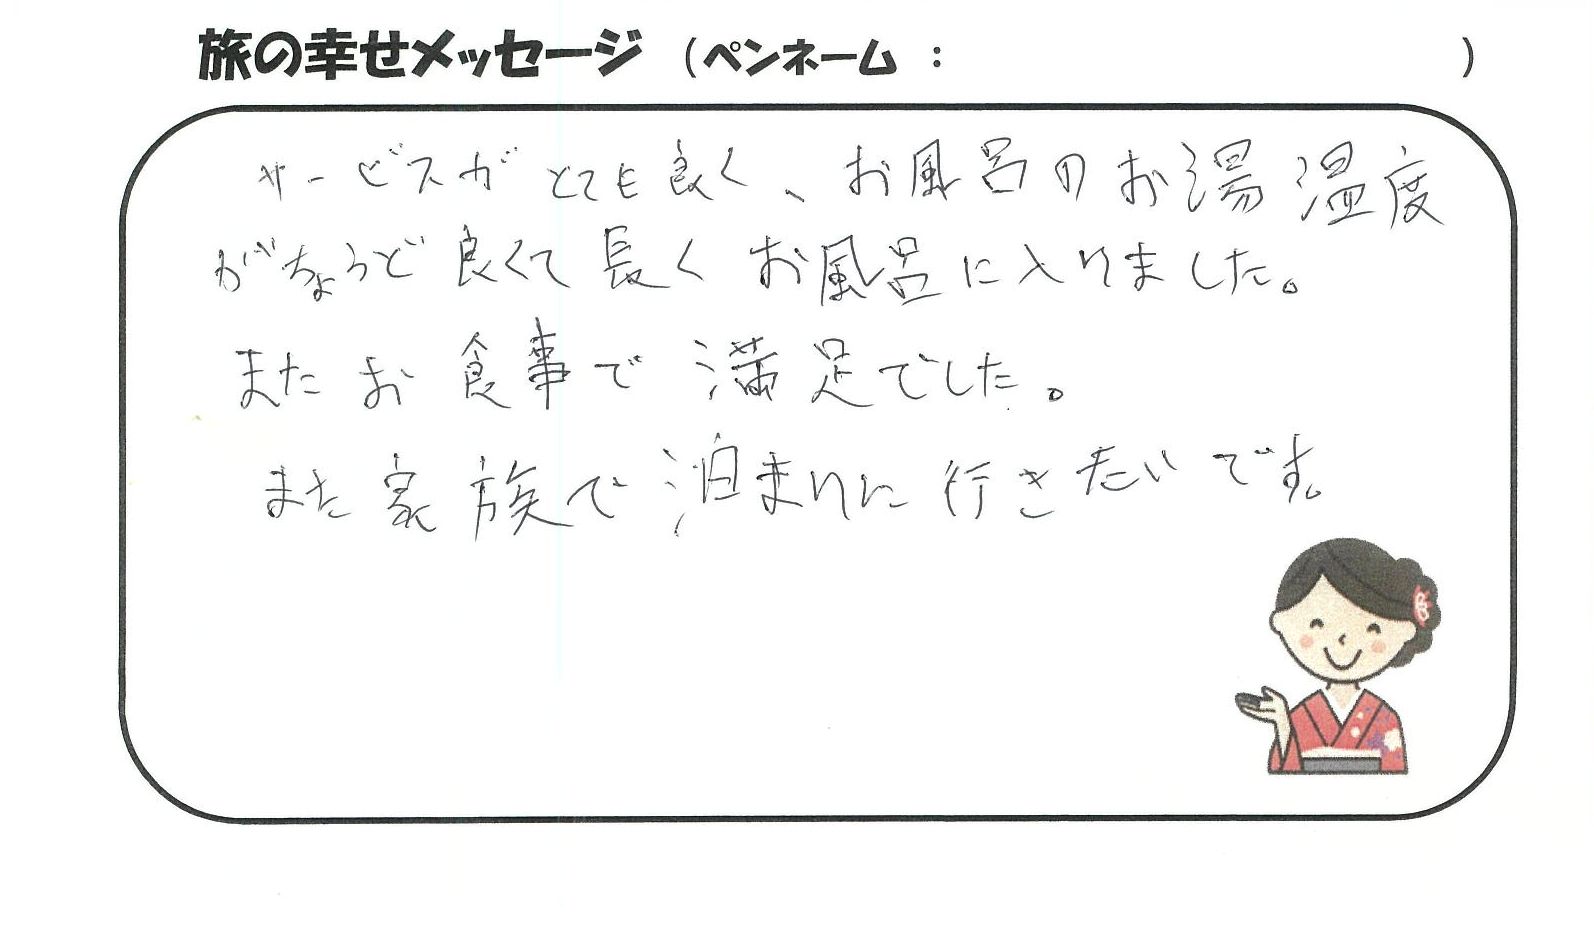 旅の幸せメッセージ （ペンネーム：　　　　　　）
サービスがとても良く、お風呂のお湯温度
がちょうど良くて長くお風呂に入りました。
またお食事で満足でした。
また家族で泊まりに行きたいです。